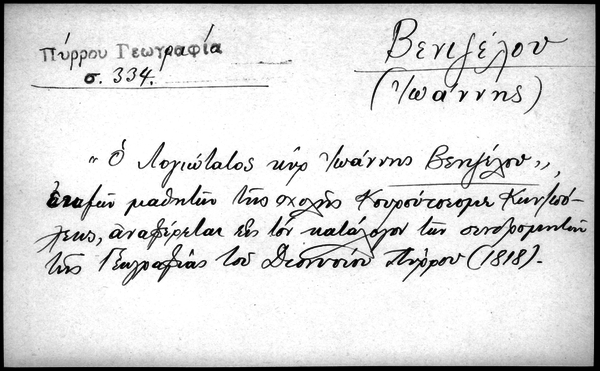 Πύρρου Γεωγραφία
σ. 334.
Βενιζέλου
(Ἰωάννης)
"Ὁ Λογιώτατος κὺρ Ἰωάννης Βενιζέλου",
μεταξὺ μαθητῶν τῆς σχολῆς Κουρούτσεσμε Κων/πό-
λεως, ἀναφέρεται εἰς τὸν κατάλογον τῶν συνδρομητῶν
τῆς Γεωγραφίας τοῦ Διονυσίου Πύρρου (1818).-